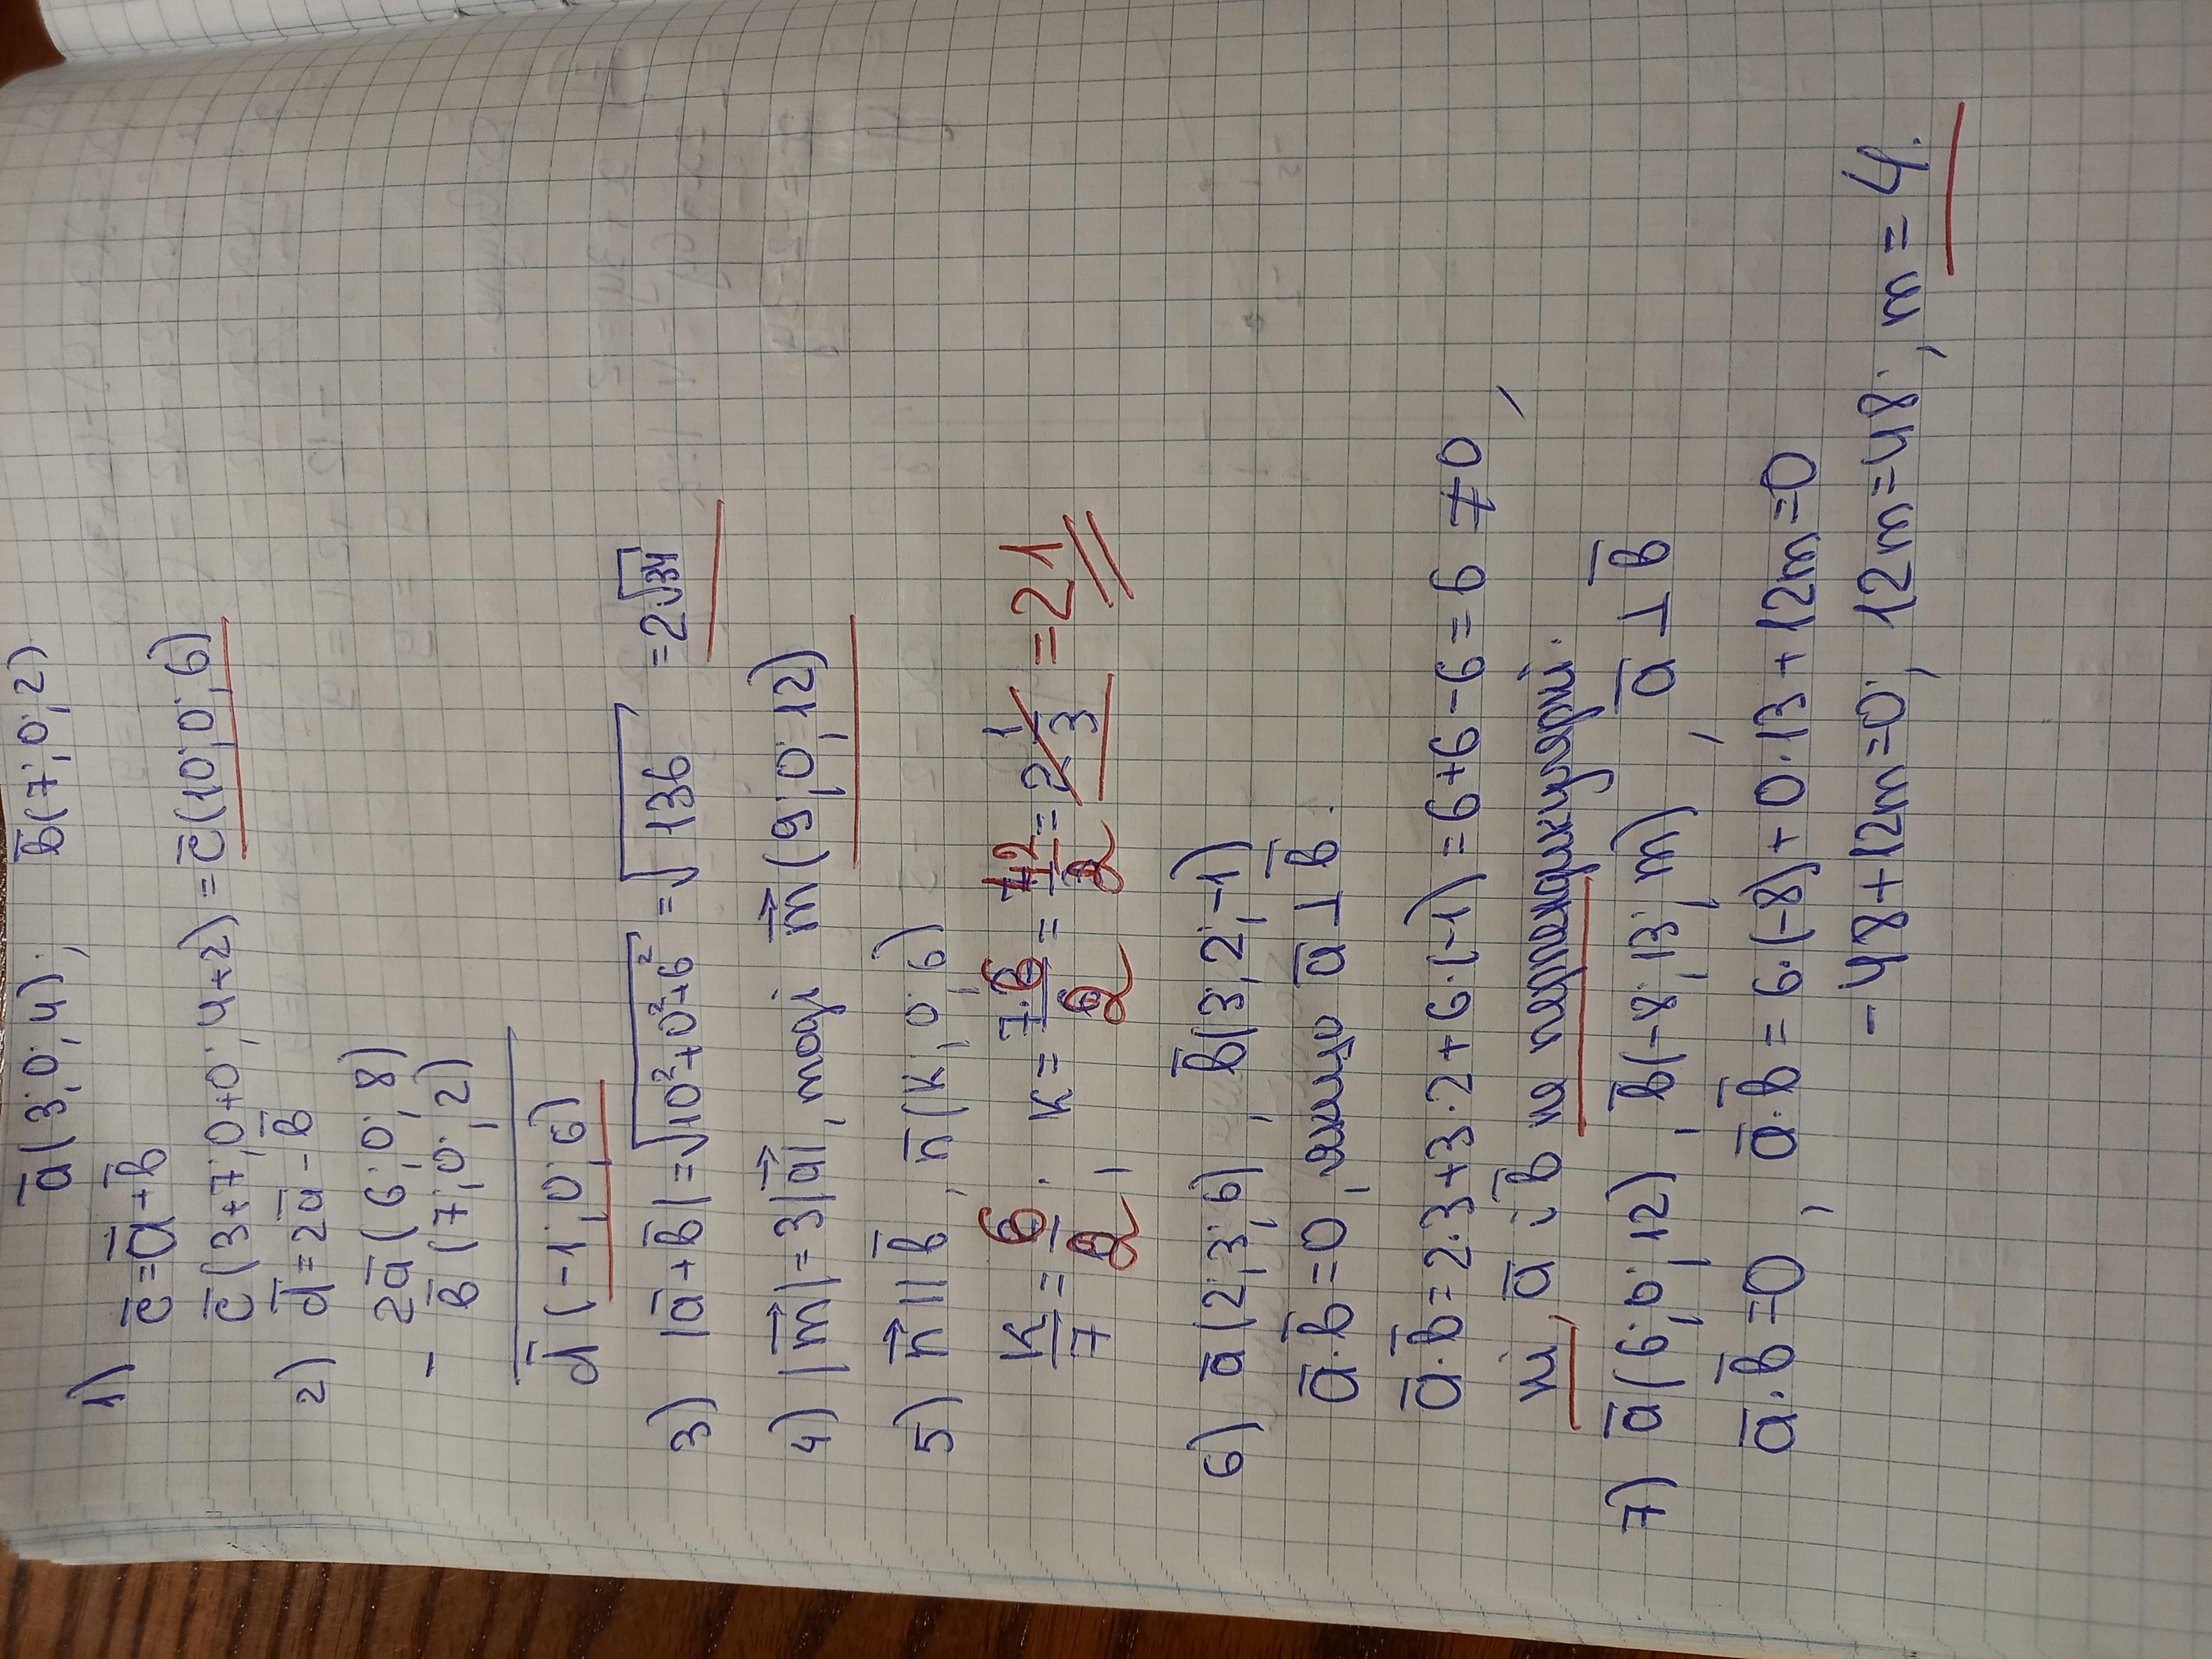 a̅(3; 0; 4); b̅(7; 0; 2)
1) c̅ = a̅ + b̅
c̅(3+7; 0+0; 4+2) = c̅(10; 0; 6)
2) d̅ = 2a̅ - b̅
2a̅(6; 0; 8)
- b̅(7; 0; 2)
d̅(-1; 0; 6)
3) |a̅+b̅| = √10²+0²+6² = √136 = 2√34
4) |m⃗| = 3|a⃗|, тоді m⃗(9; 0; 12)
5) n⃗ || b̅, n̅(к; 0; 6)
к/7 = 6/2; к = 7·6/2 = 42/2 = 2 1/3 = 21
6) a̅(2; 3; 6), b̅(3; 2; -1)
a̅·b̅ = 0, якщо a̅ ⊥ b̅.
a̅·b̅ = 2·3+3·2+6·(-1) = 6+6-6 = 6 ≠ 0,
ні, a̅ і b̅ не перпендикулярні.
7) a̅(6; 0; 12), b̅(-8; 13; m), a̅ ⊥ b̅
a̅·b̅ = 0, a̅·b̅ = 6·(-8)+0·13+12m=0
-48+12m=0; 12m=48; m=4.